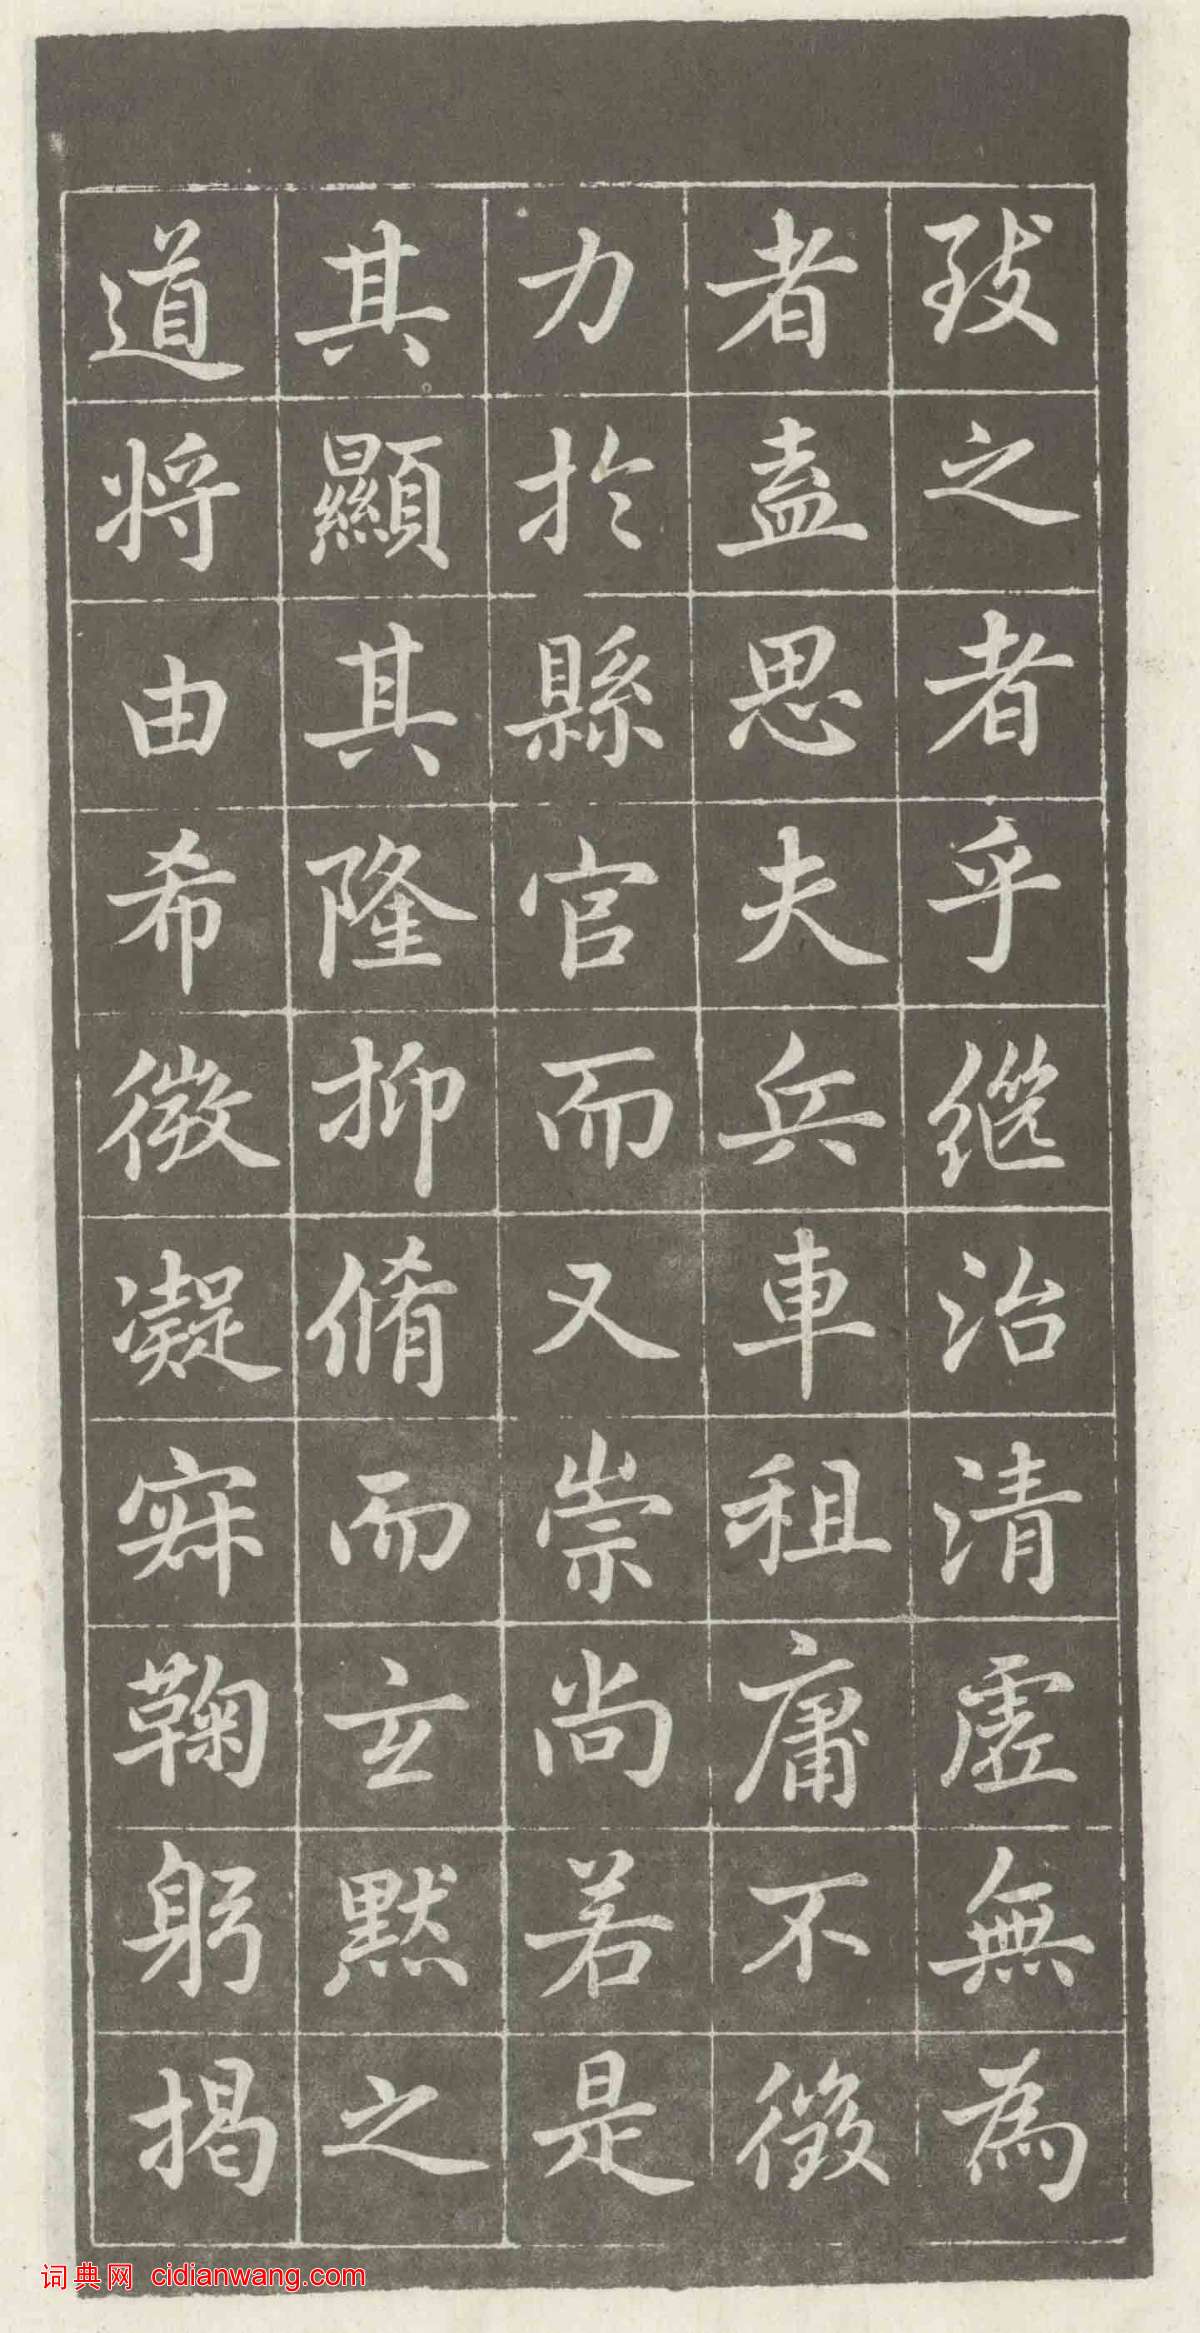 致之者乎继治清虛無為
者盖思夫兵車租庸不徵
力於縣官而又崇尚若是
其顯其隆抑脩而玄默之
道将由希微凝寂鞠躬揭
词典网 cidianwang.com